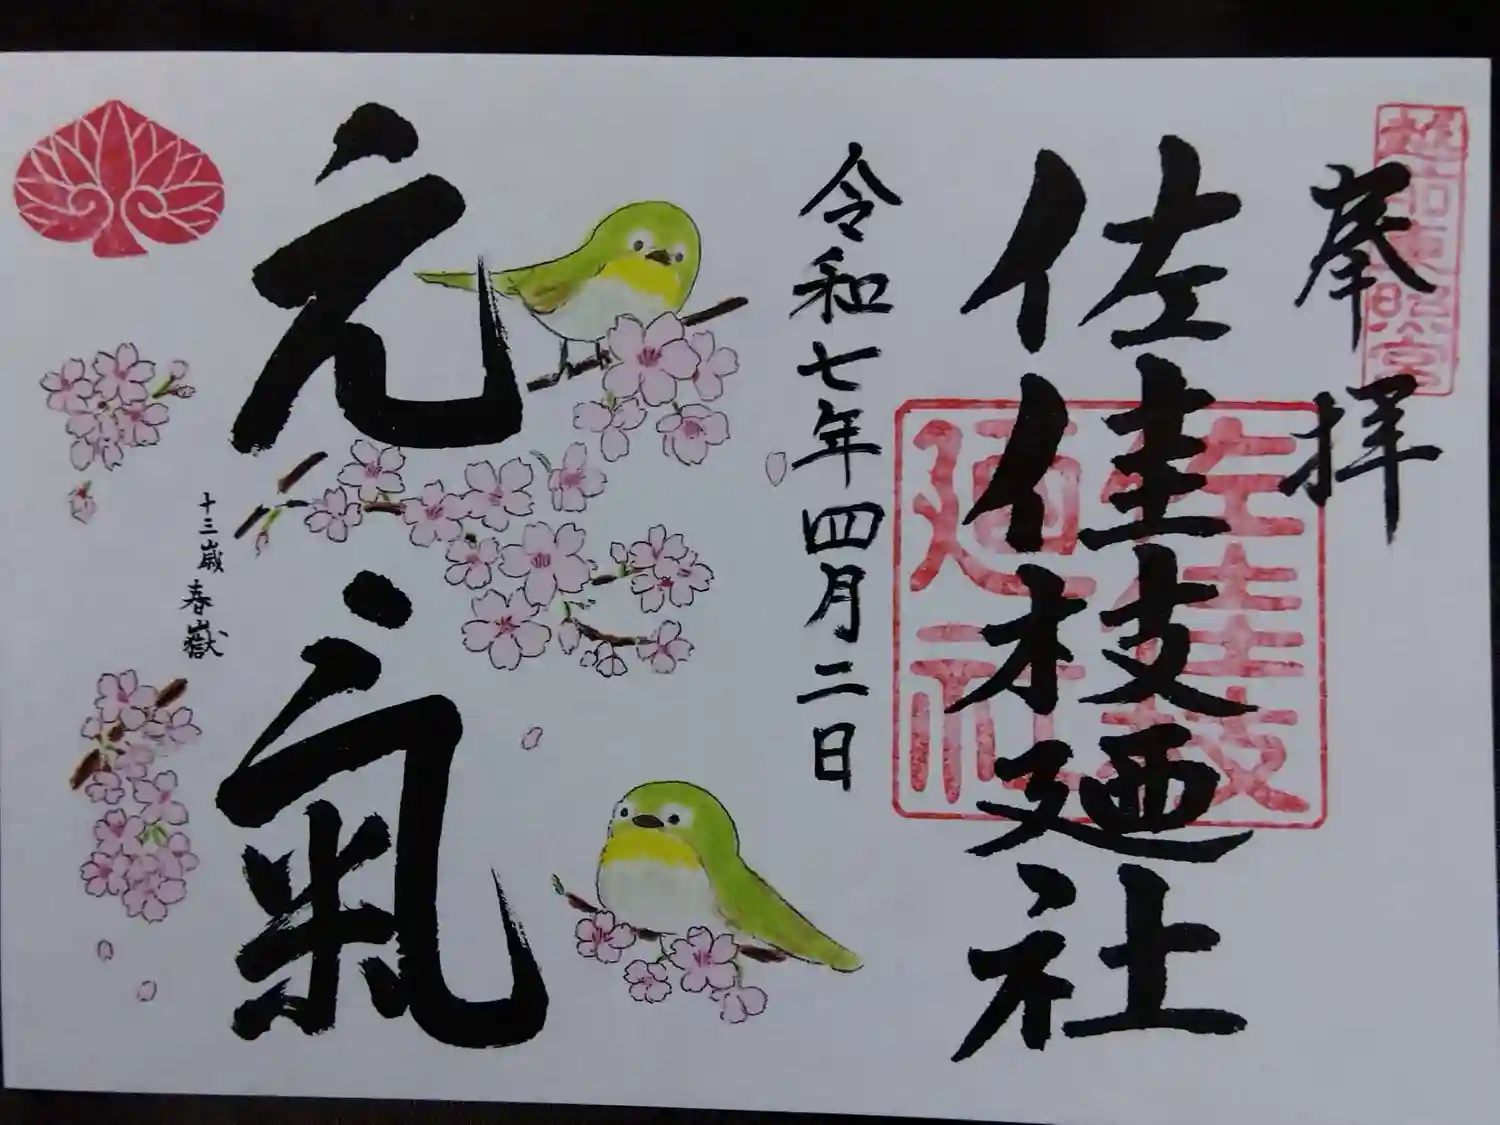 越前東照宮
奉拝
佐佳枝廼社
佐佳枝廼社
令和七年四月二日
元氣
十三歳 春嶽